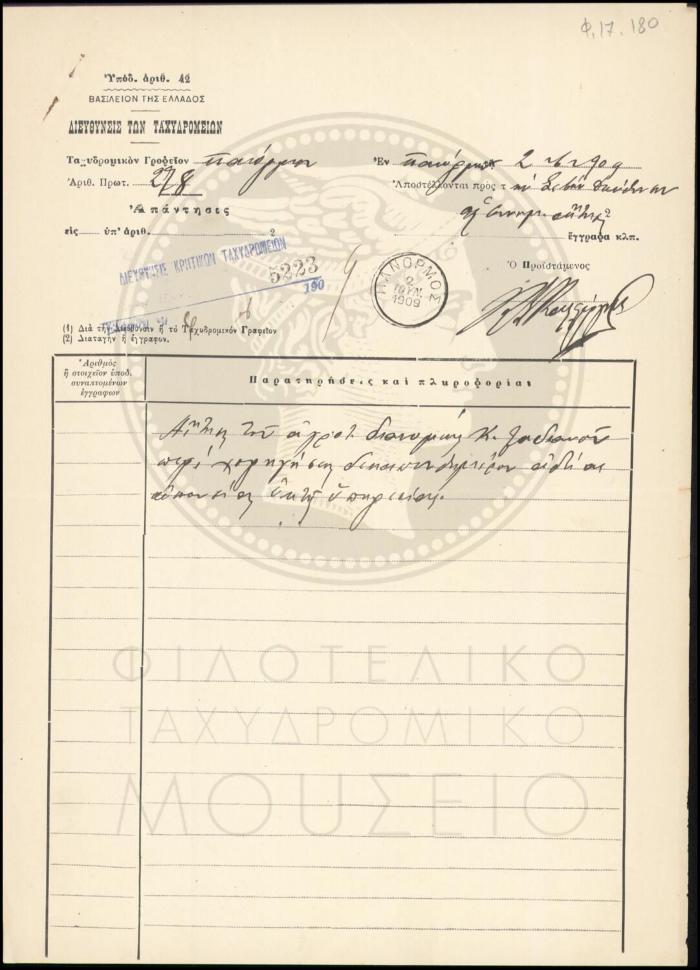 Φ. 17. 180
Ὑπόδ. ἀριθ. 42
ΒΑΣΙΛΕΙΟΝ ΤΗΣ ΕΛΛΑΔΟΣ
ΔΙΕΥΘΥΝΣΙΣ ΤΩΝ ΤΑΧΥΔΡΟΜΕΙΩΝ
Ταχυδρομικὸν Γραφεῖον Πανόρμου
Ἀριθ. Πρωτ. 278
Ἀπάντησις
εἰς ὑπ' ἀριθ. 2
Ἐν Πανόρμῳ 2 6 1909
Ἀποστέλλονται πρὸς τ
2
ἔγγραφα κλπ.
Ὁ Προϊστάμενος
ΔΙΕΥΘΥΝΣΙΣ ΚΡΗΤΙΚΩΝ ΤΑΧΥΔΡΟΜΕΙΩΝ
5223
190
ΠΑΝΟΡΜΟΣ
2
ΙΟΥΝ.
1909
(1) Διὰ τὴν Διεύθυνσιν ἢ τὸ Ταχυδρομικὸν Γραφεῖον
(2) Διαταγὴν ἢ ἔγγραφον.
Ἀριθμὸς
ἢ στοιχεῖον ὑποδ.
συναπτομένων
ἐγγράφων
Παρατηρήσεις καὶ πληροφορίαι
Αἴτησις τοῦ ἀγροτ. διανομέως Κ.
περὶ χορηγήσεως δεκαπενθημέρου ἀδείας
ἀπουσίας ἐκ τῆς ὑπηρεσίας.
ΦΙΛΟΤΕΛΙΚΟ
ΤΑΧΥΔΡΟΜΙΚΟ
ΜΟΥΣΕΙΟ